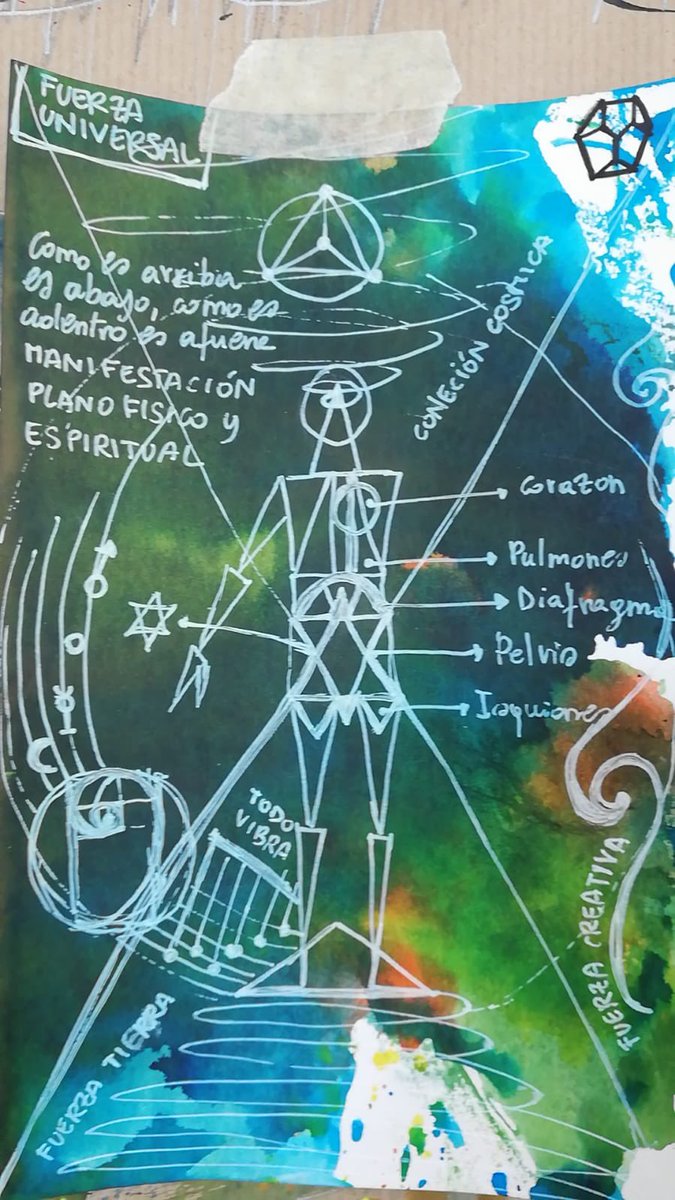 FUERZA
UNIVERSAL
Como es arriba
es abajo, como es
adentro es afuera
MANIFESTACIÓN
PLANO FISICO y
ESPIRITUAL
CONECIÓN COSMICA
Corazon
Pulmones
Diafragma
Pelvis
Isquiones
TODO
VIBRA
FUERZA CREATIVA
FUERZA TIERRA